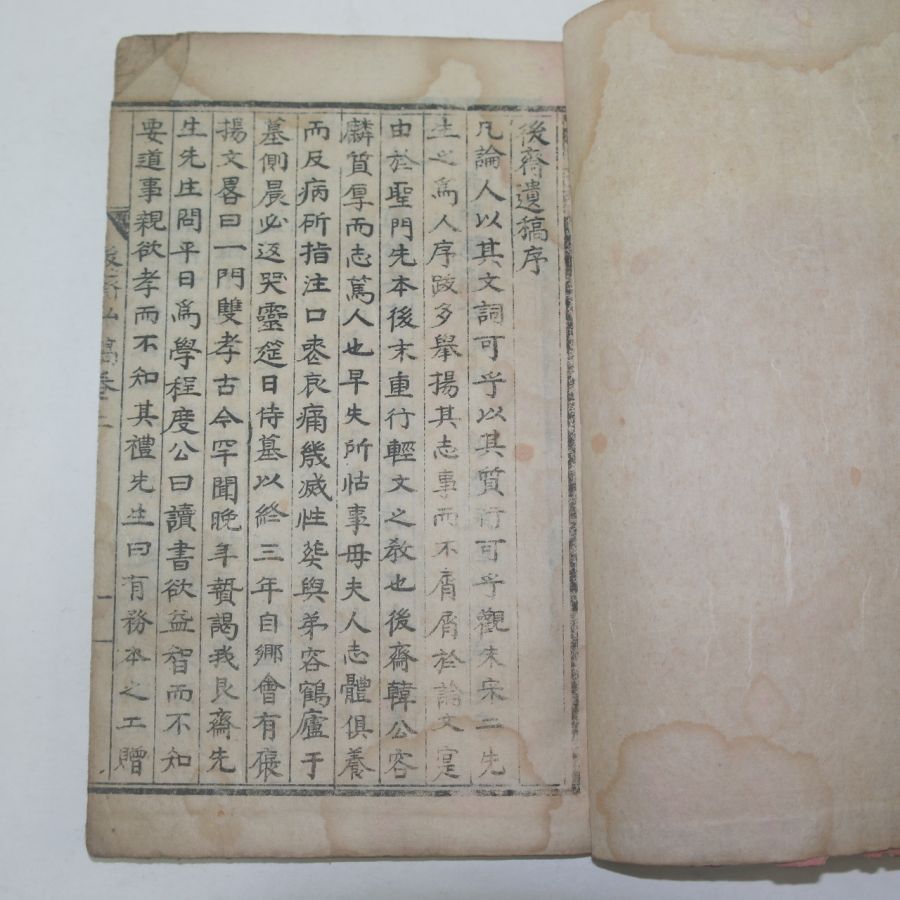 後齋遺稿序
凡論人以其文詞可乎以其質行可乎觀朱宋二先
生之爲人序跋多舉揚其志事而不屑屑於論文寔
由於聖門先本後末重行輕文之教也後齋韓公容
麟質厚而志篤人也早失所怙事毋夫人志體俱養
而反病所指注口吮哀痛幾滅性葬與弟容鶴廬于
墓側晨必返哭靈筵日侍墓以終三年自鄉會有褒
揚文畧曰一門雙孝古今罕聞晚年贄謁我艮齋先
生先生問平日爲學程度公曰讀書欲益智而不知
要道事親欲孝而不知其禮先生曰有務本之工贈
後齋 稿卷 一